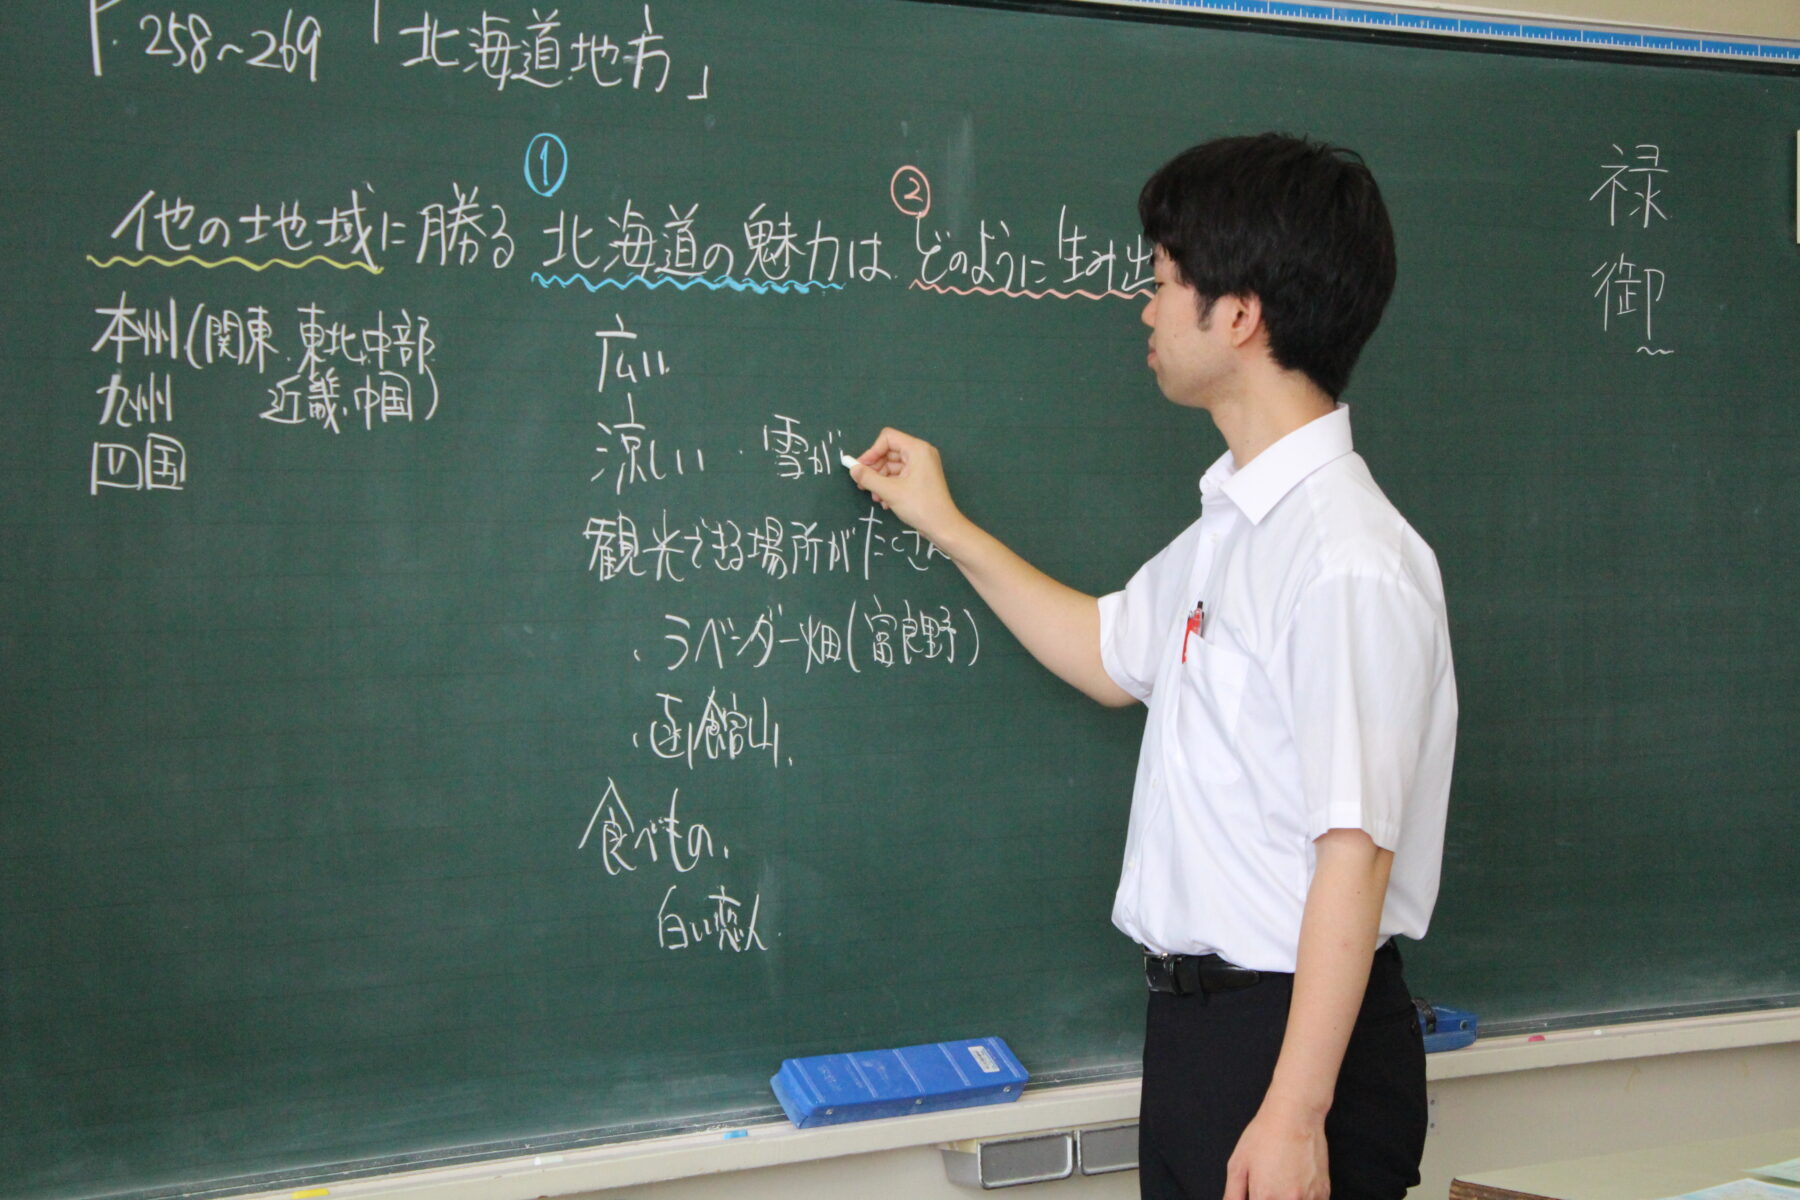 P.258~269「北海道地方」
① ②
他の地域に勝る 北海道の魅力は どのように生み出
本州(関東、東北、中部
九州 近畿、中国)
四国
広い
涼しい・雪が
観光できる場所がたくさん
・ラベンダー畑(富良野)
・函館山
食べもの
白い恋人
禄
御